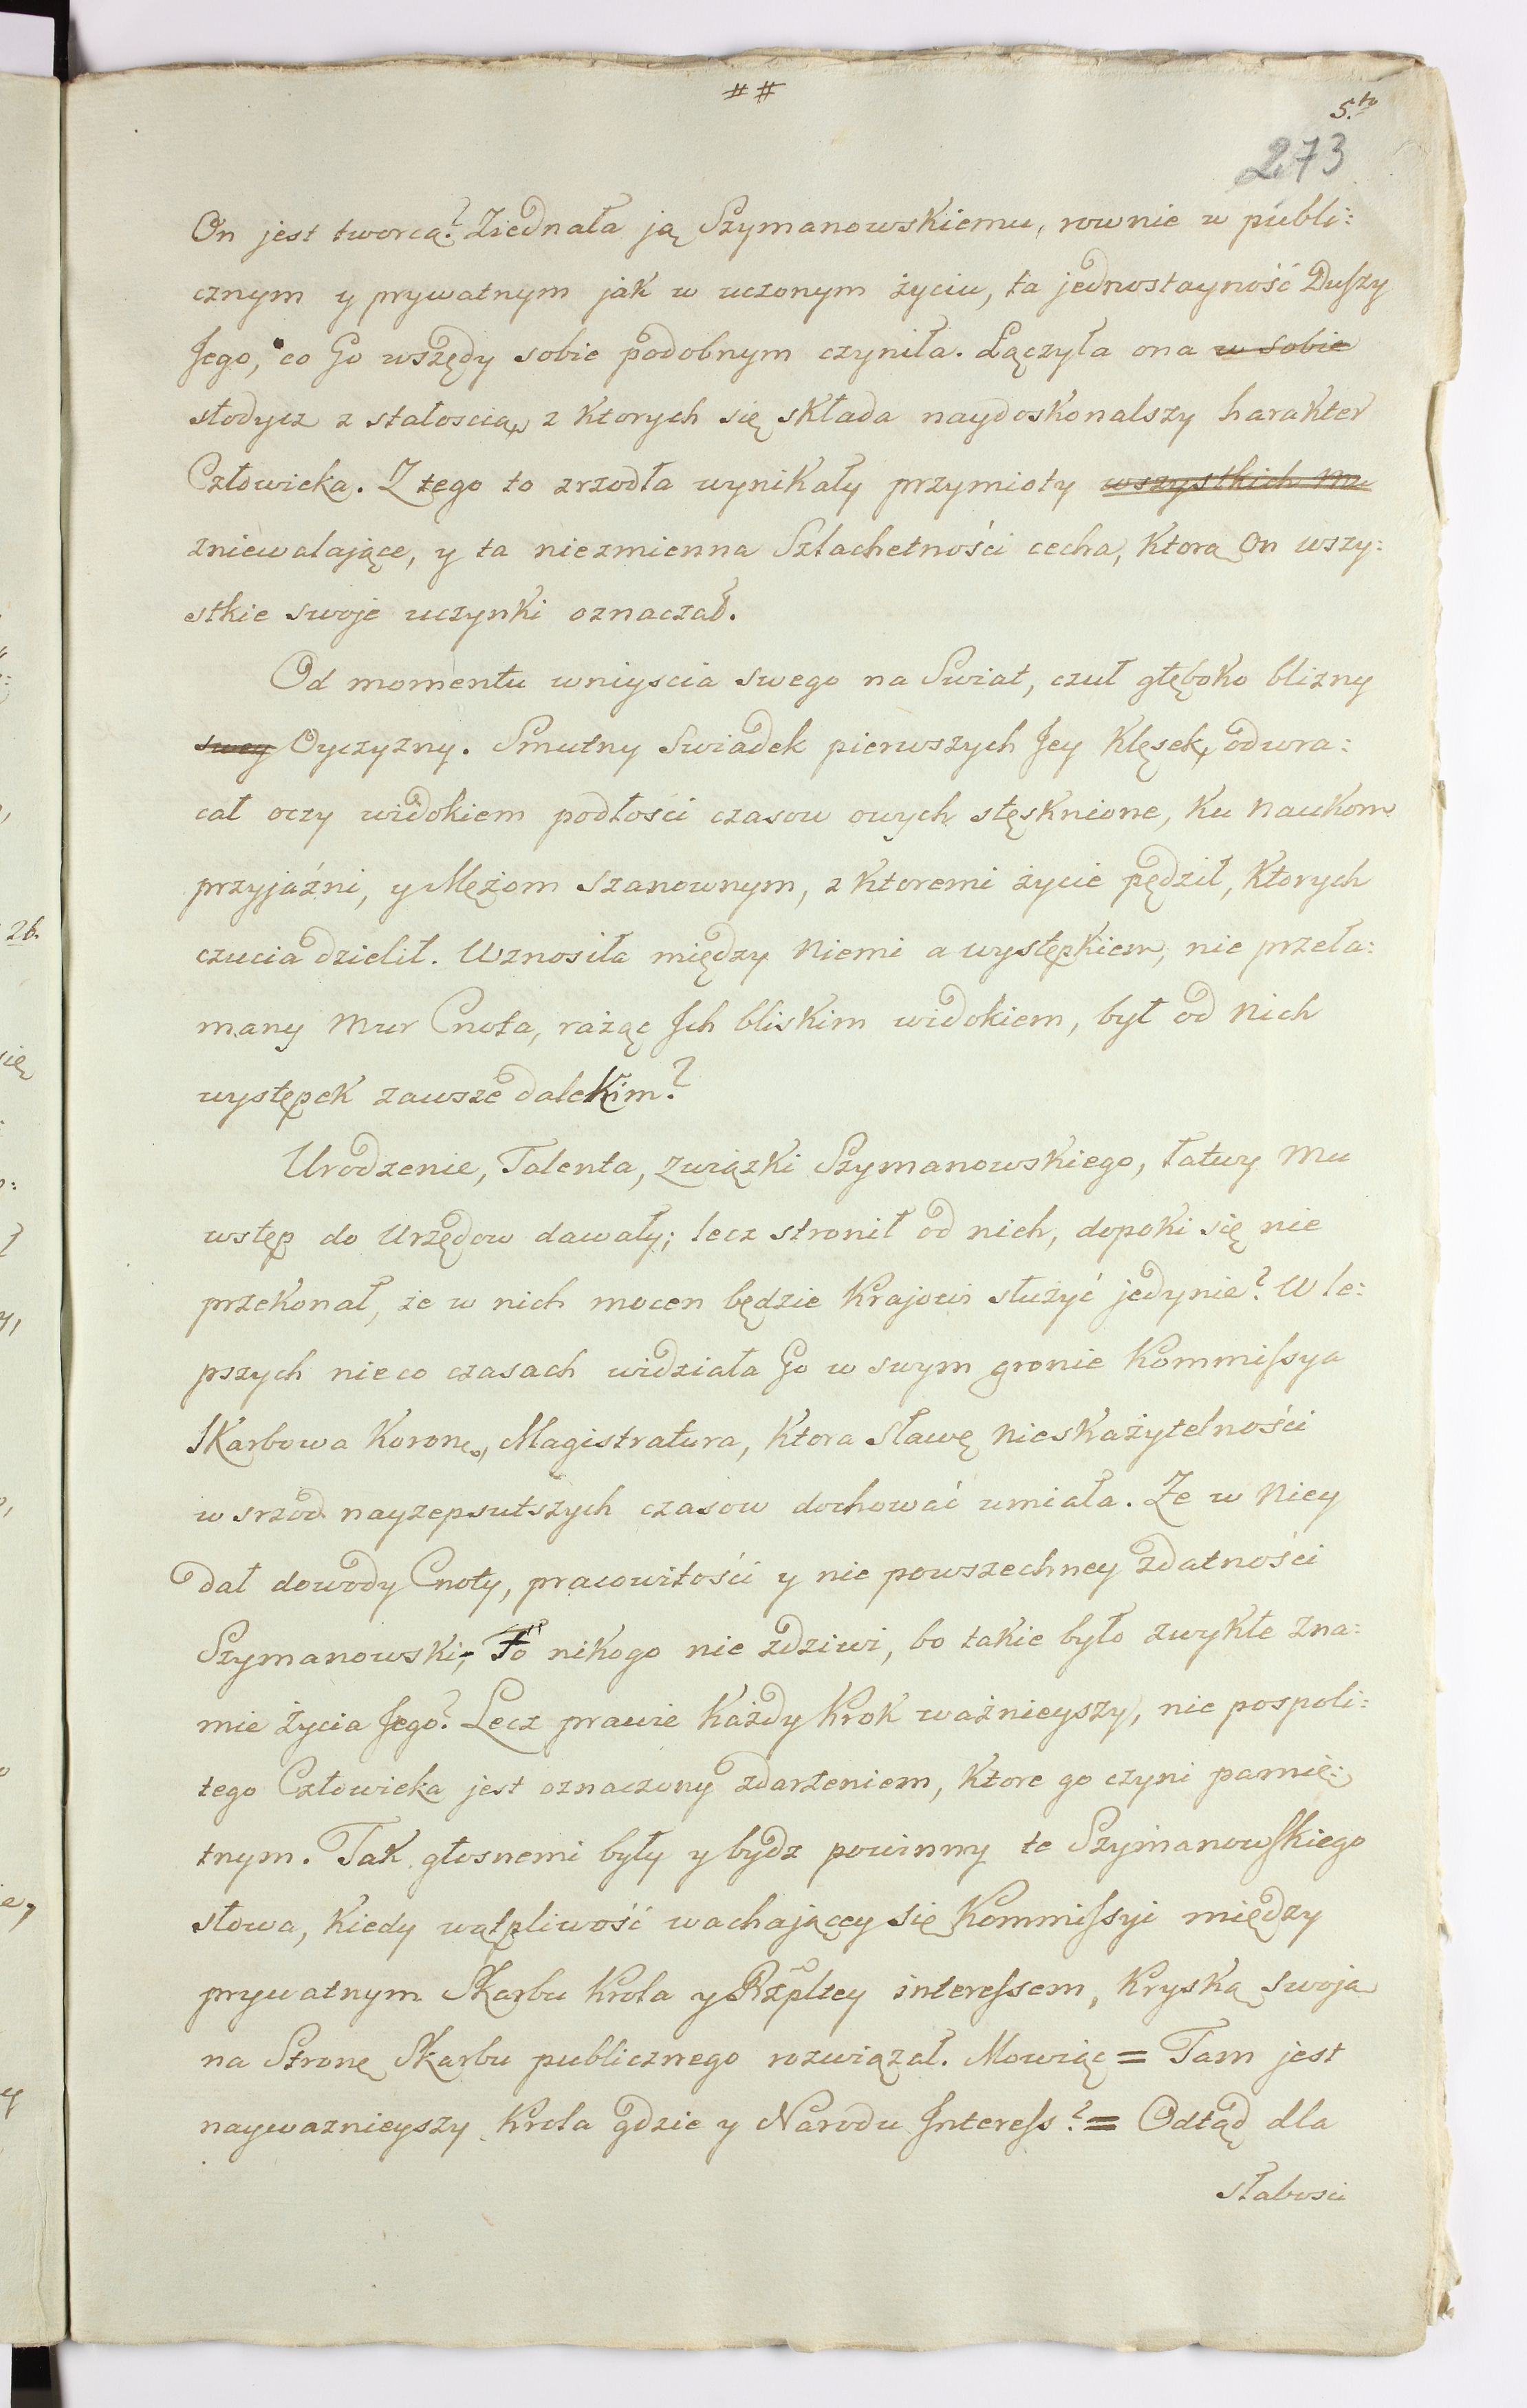 # #
5.to
273
On jest tworcą? Ziednała ją Szymanowskiemu, rownie w publi:
cznym y prywatnym jak w uczonym życiu, ta jednostayność Duszy
Jego, co Go wszędy sobie podobnym czyniła. Łączyła ona w sobie
słodycz z stałoscią, z ktorych się składa naydoskonalszy harakter
Człowieka. Z tego to zrzodła wynikały przymioty wszystkich mu
zniewalające, y ta niezmienna Szlachetności cecha, ktorą On wszy:
stkie swoje uczynki oznaczał.
Od momentu wniyscia swego na Swiat, czuł głęboko blizny
swey Oyczyzny. Smutny Swiadek pierwszych Jey Klęsek, odwra:
cał oczy widokiem podłosci czasow owych stęsknione, ku Naukom
przyjaźni, y Mężom szanownym, z ktoremi życie pędził, ktorych
czucia dzielił. Wznosiła między Niemi a występkiem, nie przeła:
many Mur Cnota, rażąc Ich bliskim widokiem, był od Nich
występek zawsze dalekim?
Urodzenie, Talenta, związki Szymanowskiego, łatwy Mu
wstęp do Urzędow dawały; lecz stronił od nich, dopoki się nie
przekonał, że w nich mocen będzie Krajowi służyć jedynie? W le:
pszych nieco czasach widziała Go w swym gronie Kommissya
Skarbowa Koronę, Magistratura, ktora Sławę Nieskażytelności
w srzod nayzepsutszych czasow dochować umiała. Ze w Niey
dał dowody Cnoty, pracowitości y nie powszechney zdatności
Szymanowski; To nikogo nie zdziwi, bo takie było zwykłe zna:
mie życia Jego? Lecz prawie każdy krok ważnieyszy, nie pospoli:
tego Człowieka jest oznaczony zdarzeniem, ktore go czyni pamię:
tnym. Tak głosnemi były y bydz powinny te Szymanowskiego
słowa, kiedy wątpliwość wachającey się Kommissyi między
prywatnym Skarbu Krola y Rzpltey interessem, Kryską swoją
na Stronę Skarbu publicznego rozwiązał. Mowiąc = Tam jest
naywaznieyszy Krola gdzie y Narodu Interess? = Odtąd dla
słabosci
26.